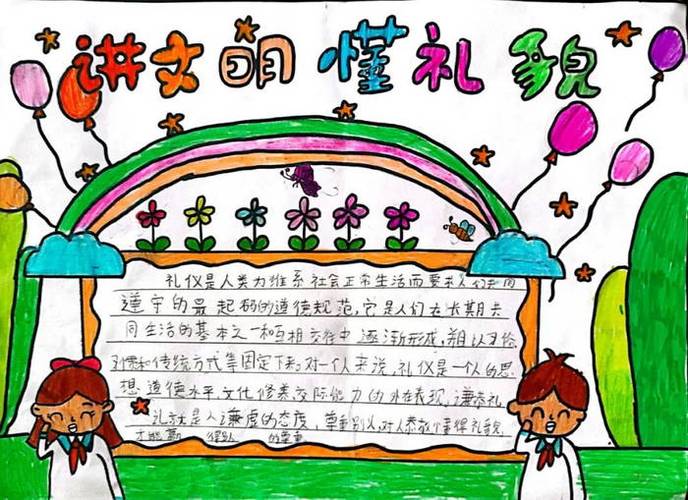 讲文明懂礼貌
礼仪是人类为维系社会正常生活而要求人们共同
遵守的最起码的道德规范,它是人们在长期共
同生活的基本之一和互相交往中逐渐形成,
习惯和传统方式等固定下来,对一个人来说,礼仪是一个人的思
想道德水平,文化修养,交际能力的外在表现,谦恭礼,
礼就是人谦虚的态度,尊重别人,对人恭敬懂得礼貌
的尊重